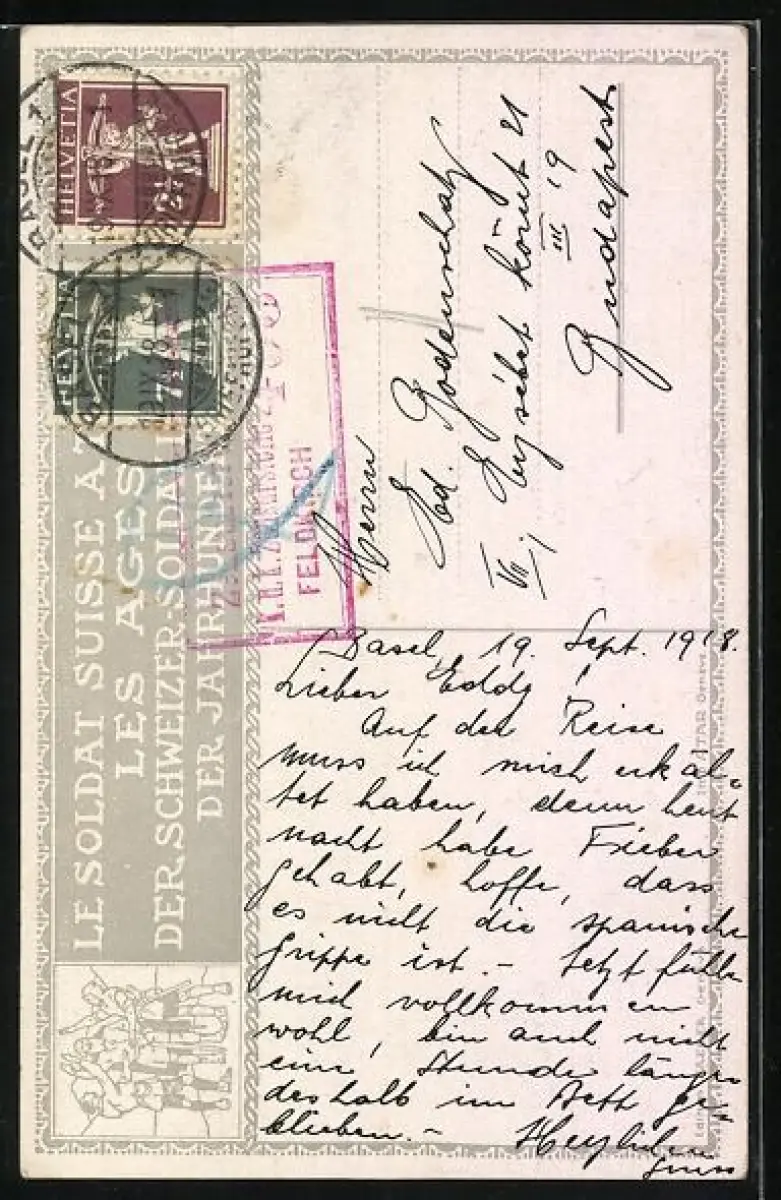 LE SOLDAT SUISSE A T
LES AGES
DER SCHWEIZER-SOLDAT
DER JAHRHUNDE
HELVETIA
HELVETIA
7½
BASEL 1
FELDKIRCH
Herrn
Ed. Bodenschatz
VII, Erzsébet körut 21
III 19
Budapest
Basel, 19. Sept. 1918.
Lieber Eddy!
Auf der Reise
muss ich mich erkäl-
tet haben, denn heut
nacht habe Fieber
gehabt, hoffe, dass
es nicht die spanische
Grippe ist. – Jetzt fühle
mich vollkommen
wohl, bin auch nicht
eine Stunde länger
deshalb im Bett ge-
blieben. – Herzlichen
Gruss